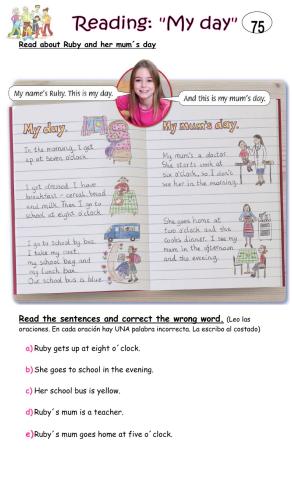 Reading: "My day"
75
Read about Ruby and her mum´s day
My name's Ruby. This is my day.
And this is my mum's day.
My day.
In the morning, I get
up at seven o'clock.
I get dressed. I have
breakfast - cereal, bread
and milk. Then I go to
school at eight o'clock.
I go to school by bus.
I take my coat,
my school bag and
my lunch box.
Our school bus is blue.
My mum's day.
My mum's a doctor.
She starts work at
six o'clock, so I don't
see her in the morning.
She goes home at
two o'clock and she
cooks dinner. I see my
mum in the afternoon
and the evening.
Read the sentences and correct the wrong word. (Leo las
oraciones. En cada oración hay UNA palabra incorrecta. La escribo al costado)
a) Ruby gets up at eight o´clock.
b) She goes to school in the evening.
c) Her school bus is yellow.
d) Ruby´s mum is a teacher.
e) Ruby´s mum goes home at five o´clock.